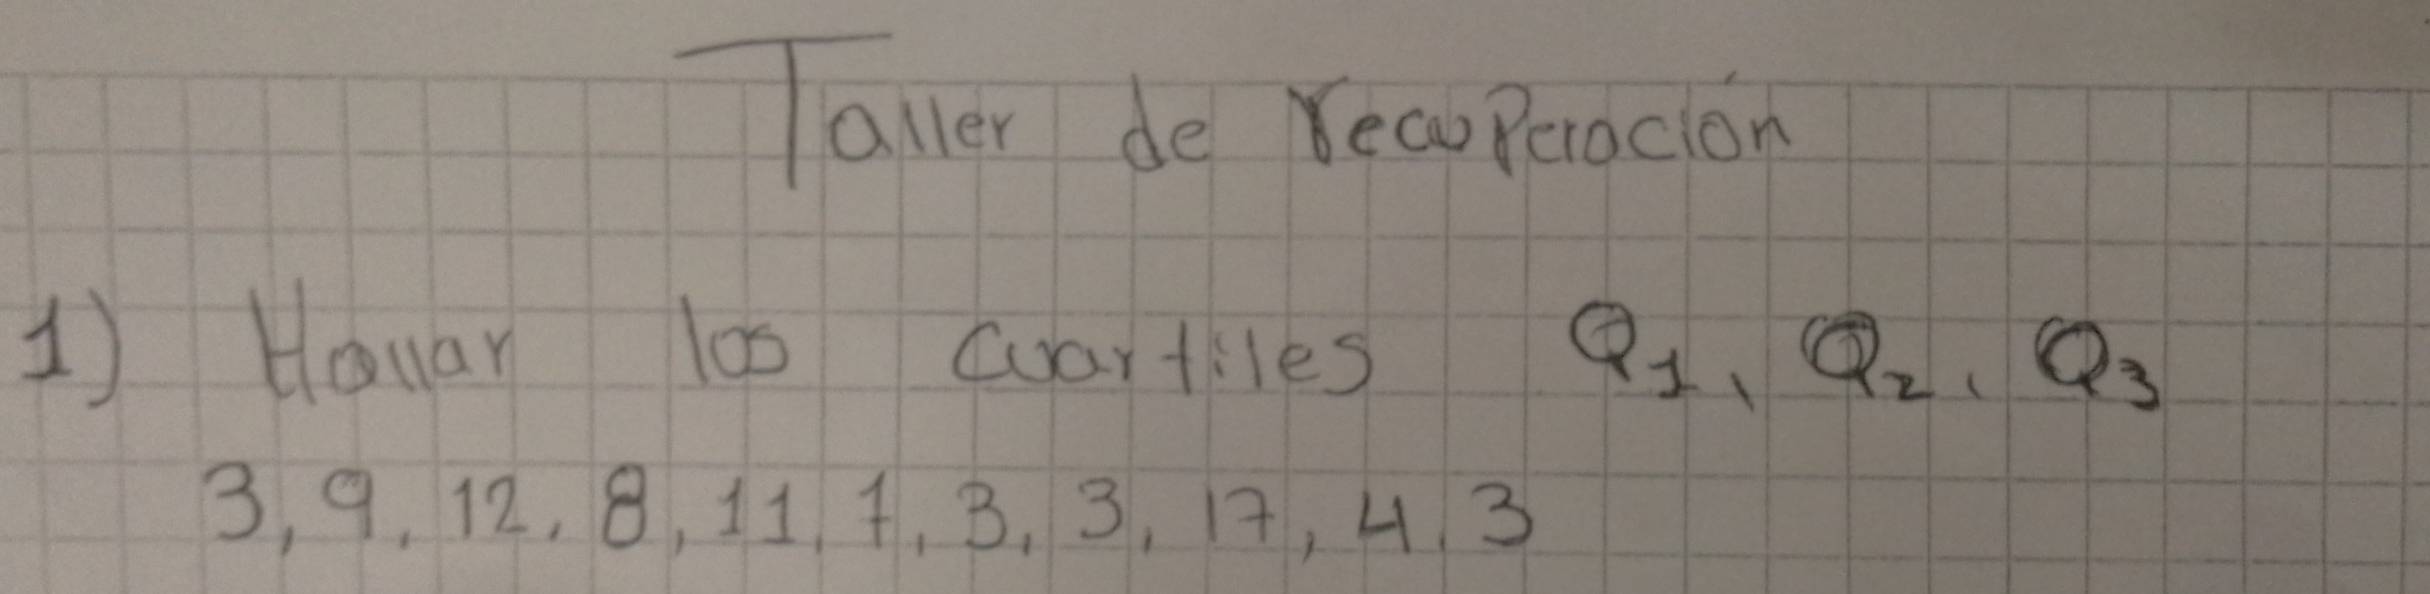 Taller de recuperación
1) Hallar los cuartiles Q1, Q2, Q3
3, 9, 12, 8, 11, 7, 3, 3, 17, 4, 3